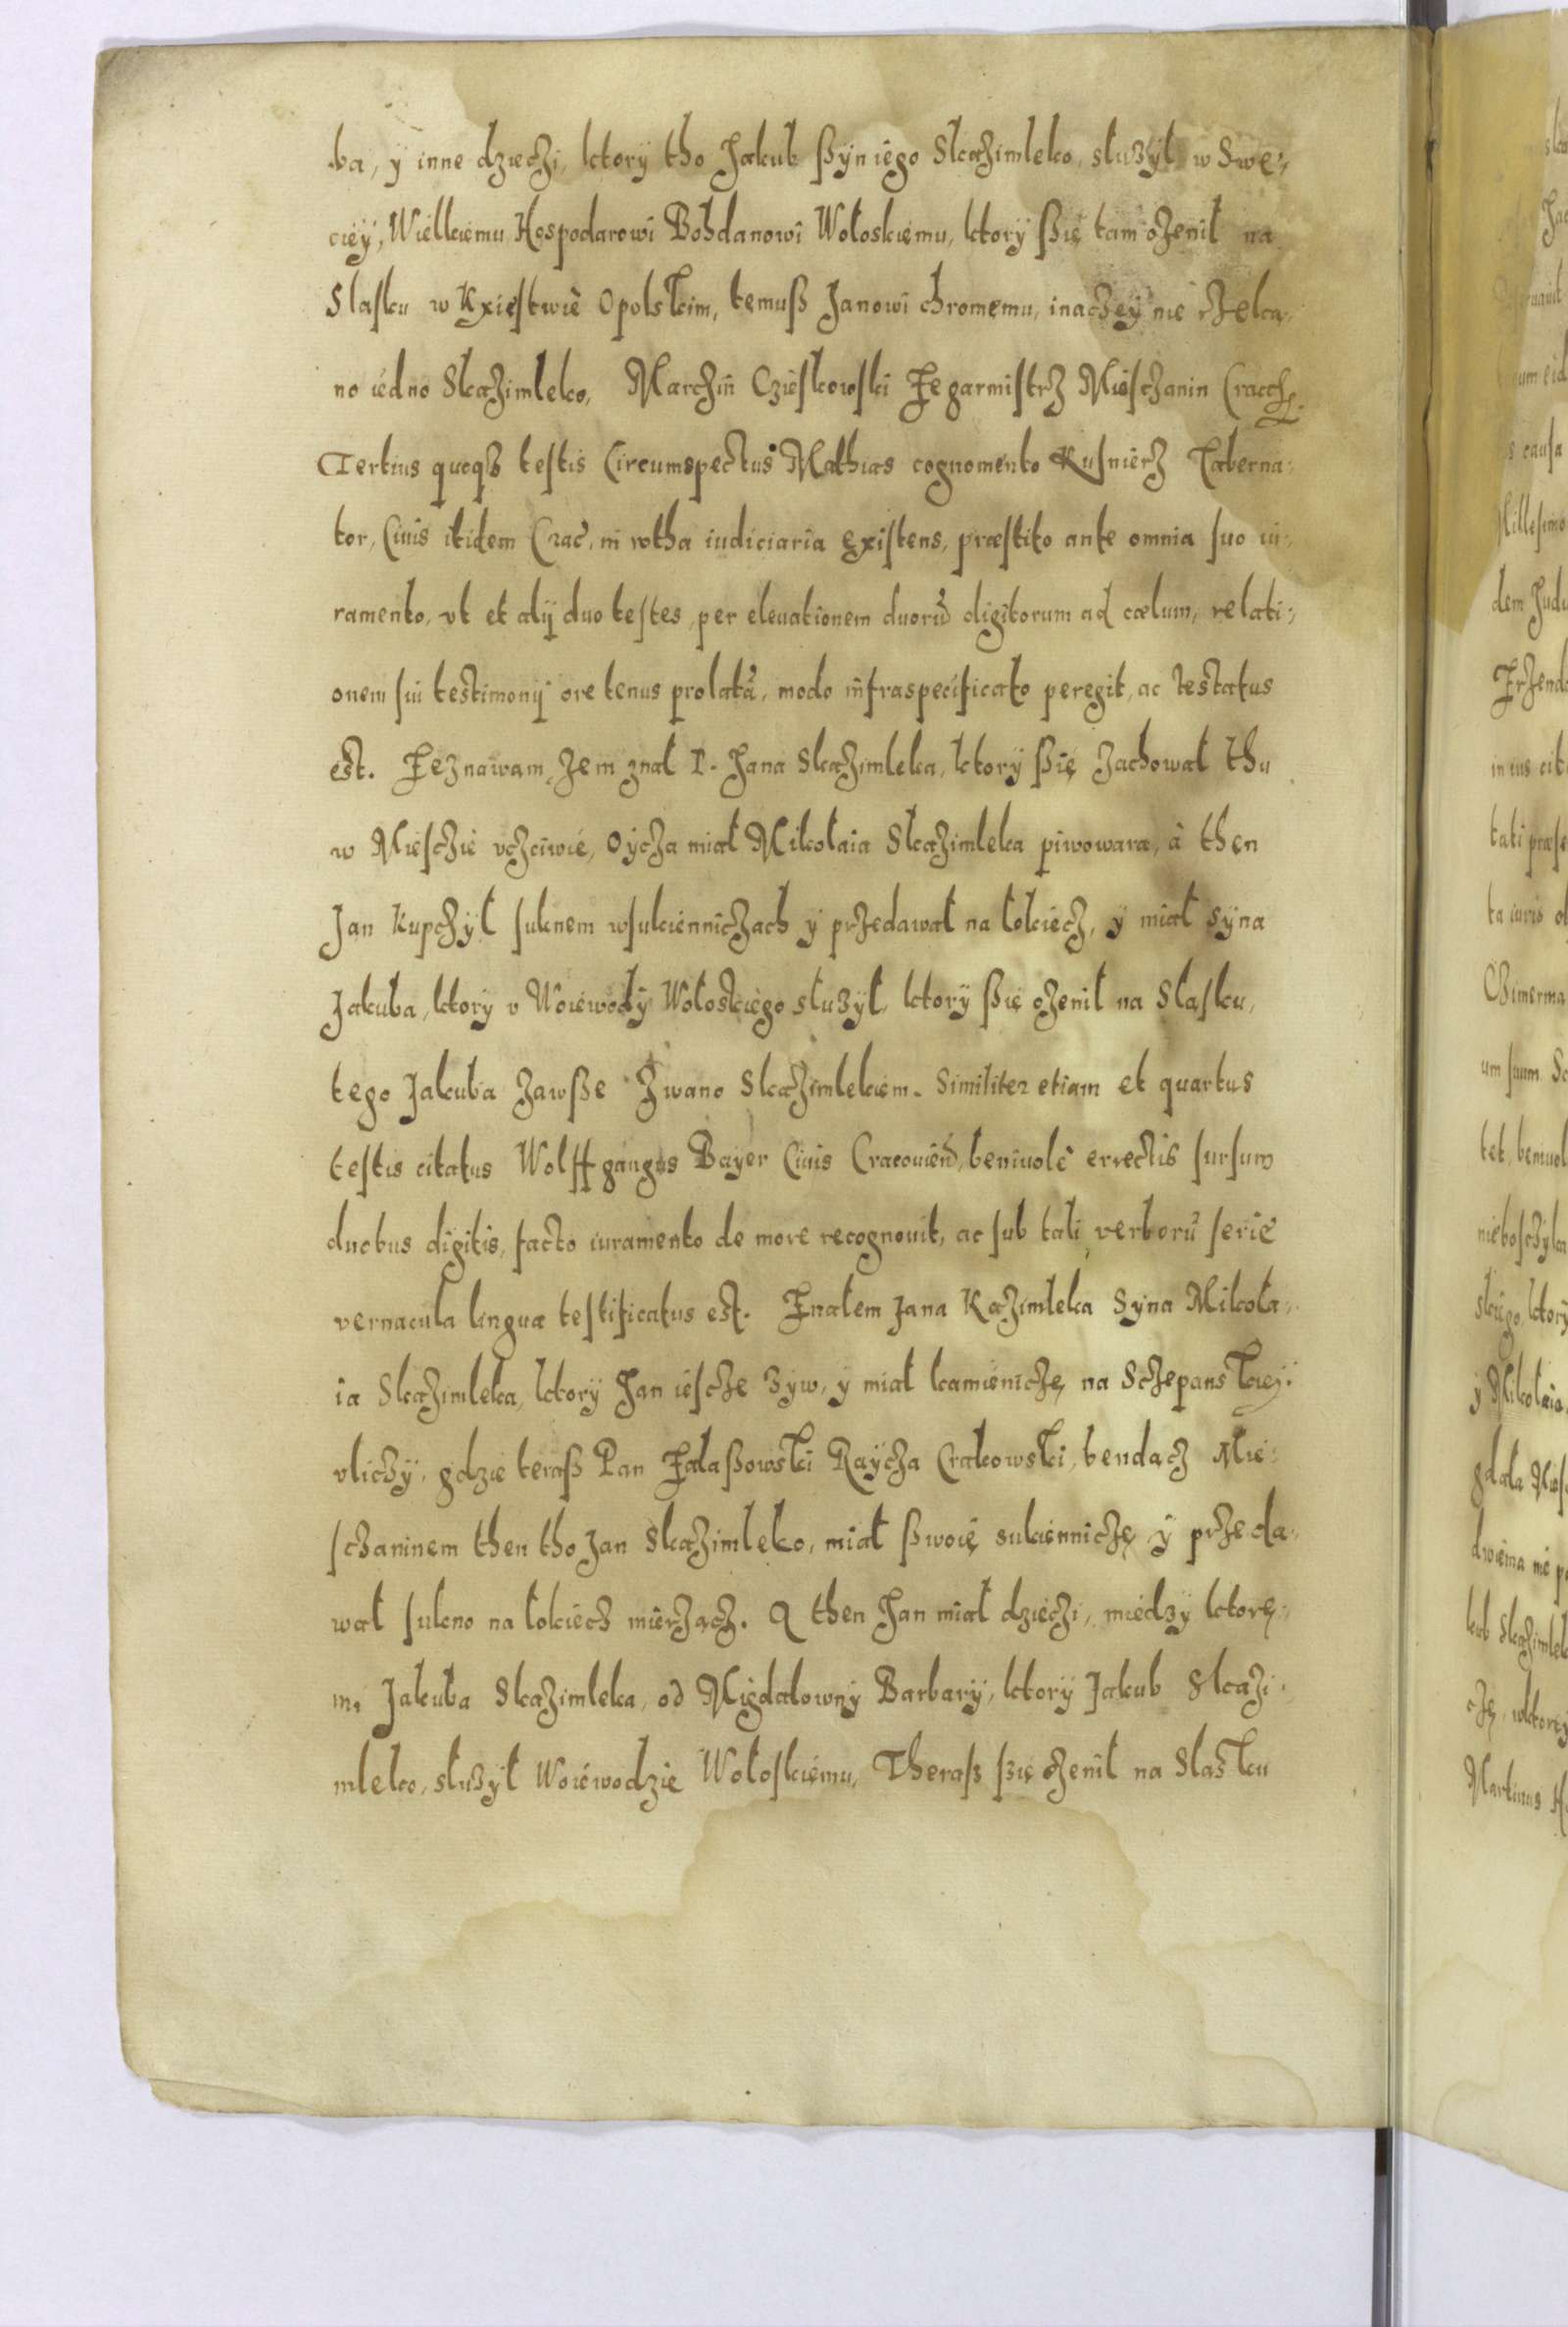 ba, ÿ inne dziećzi, ktorÿ tho Jakub ßÿn iego Skażimleko, służÿł w Swe:,
cieÿ, Wielkiemu Hospodarowi Bohdanowi Wołoskiemu, ktorÿ ßię tam ożenił na
Slasku w Kxiestwie Opolskim, temuß Janowi chromemu, inaczeÿ nie rzeka,
no iedno Skażimleko, Marchin Czieskowski Zegarmistrz Miesczanin Cracoh.
Tertius quoqз testis Circumspectus Mathias cognomento Kusnierz Taberna:
tor, Ciuis itidem Crac, in wtha iudiciaria existens, præstito ante omnia suo iu:,
ramento, vt et alÿ duo testes, per eleuationem duorũ digitorum ad cælum, relati:,
onem sui testimonÿ ore tenus prolatã, modo infraspecificato peregit, ac testatus
est. Zeznawam, zem znał P. Jana Skazimleka, ktory ßię zachował thu
w Miesczie vczciwie, Oÿcza miał Mikołaia Skazimleka piwowara, à then
Jan Kupczÿł suknem wsukienniczach ÿ przedawał na łokiecz, ÿ miał sÿna
Jakuba, ktorÿ v Woiewodÿ Wołoskiego służÿł, ktorÿ ßię ożenił na Slasku,
tego Jakuba zawßse zwano Skazimlekiem. Similiter etiam et quartus
testis citatus Wolffgangus Bayer Ciuis Cracouieñ, beniuolè errectis sursum
duobus digitis, facto iuramento de more recognouit, ac sub tali verborũ serie
vernacula lingua testificatus est. Znałem Jana Kazimleka Sÿna Mikoła:,
ia Skazimleka, ktorÿ Jan iescze żÿw, ÿ miał kamieniczę na Sczepanskieÿ:
vliczÿ, gdzie teraß Pan Załaßowski Raÿcza Crakowski, bendącz Mie:
sczaninem then tho Jan Skazimleko, miał ßwoię sukienniczę ÿ przeda:
wał sukno na łokiecz mierzącz. A then Jan miał dzieczi, miedzÿ ktorę:,
mi Jakuba Skazimleka, od Migdałownÿ Barbarÿ, ktorÿ Jakub Skazi:
mleko, służÿł Woiewodzie Wołoskiemu, Theraß ßię ożenił na Slasku